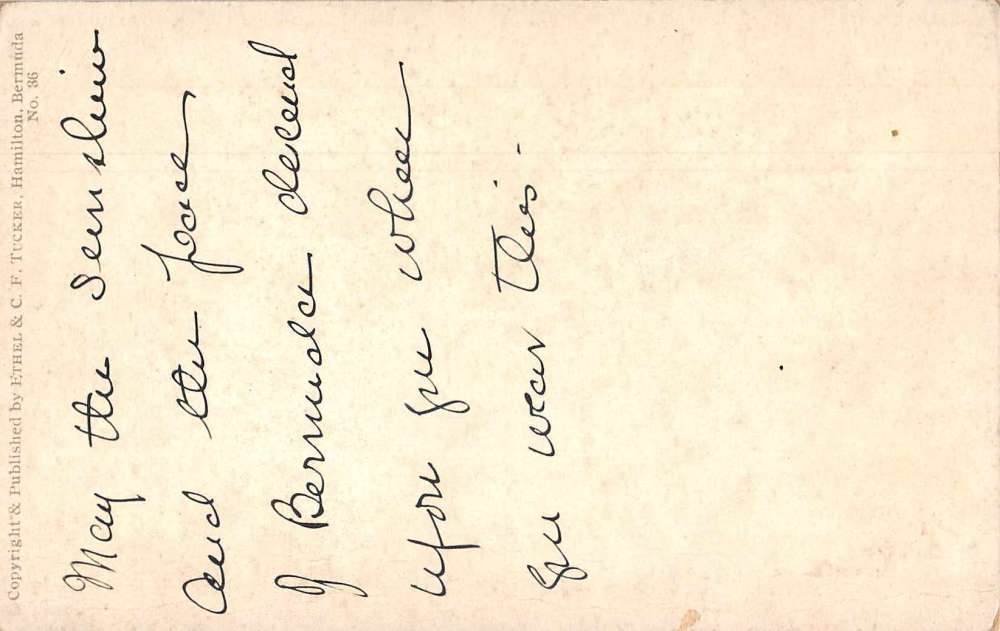 Copyright & Published by ETHEL & C. F. TUCKER, Hamilton, Bermuda
No. 36
May the sunshine
and the
of Bermuda descend
upon you when
you wear this.